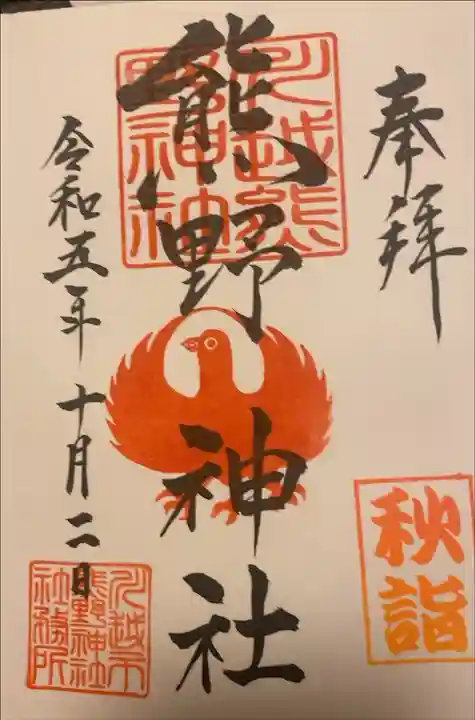 奉拝
秋詣
川越熊
野神社
熊野神社
令和五年十月二日
川越市
熊野神社
社務所